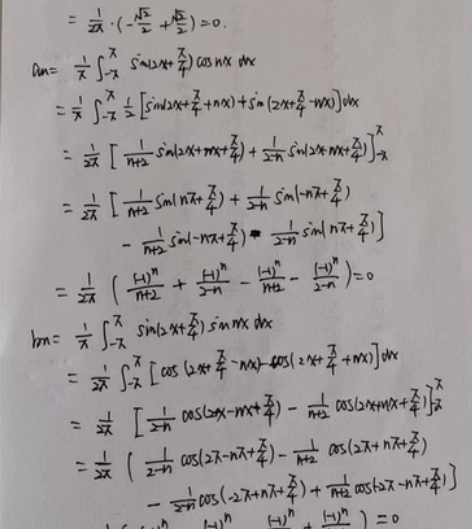 = 1/2π · (-√2/2 + √2/2) = 0.
an= 1/π ∫_{-π}^{π} sin(2x+π/4) cos nx dx
= 1/π ∫_{-π}^{π} 1/2 [sin(2x+π/4+nx) + sin(2x+π/4-nx)] dx
= 1/2π [ 1/(n+2) sin(2x+nx+π/4) + 1/(2-n) sin(2x-nx+π/4) ]_{-π}^{π}
= 1/2π [ 1/(n+2) sin(nπ+π/4) + 1/(2-n) sin(-nπ+π/4)
- 1/(n+2) sin(-nπ+π/4) - 1/(2-n) sin(nπ+π/4) ]
= 1/2π ( (-1)^n/(n+2) + (-1)^n/(2-n) - (-1)^n/(n+2) - (-1)^n/(2-n) ) = 0
bn= 1/π ∫_{-π}^{π} sin(2x+π/4) sin nx dx
= 1/2π ∫_{-π}^{π} [cos(2x+π/4-nx) - cos(2x+π/4+nx)] dx
= 1/2π [ 1/(2-n) cos(2x-nx+π/4) - 1/(n+2) cos(2x+nx+π/4) ]_{-π}^{π}
= 1/2π ( 1/(2-n) cos(2π-nπ+π/4) - 1/(n+2) cos(2π+nπ+π/4)
- 1/(2-n) cos(-2π+nπ+π/4) + 1/(n+2) cos(-2π-nπ+π/4) ]
) = 0